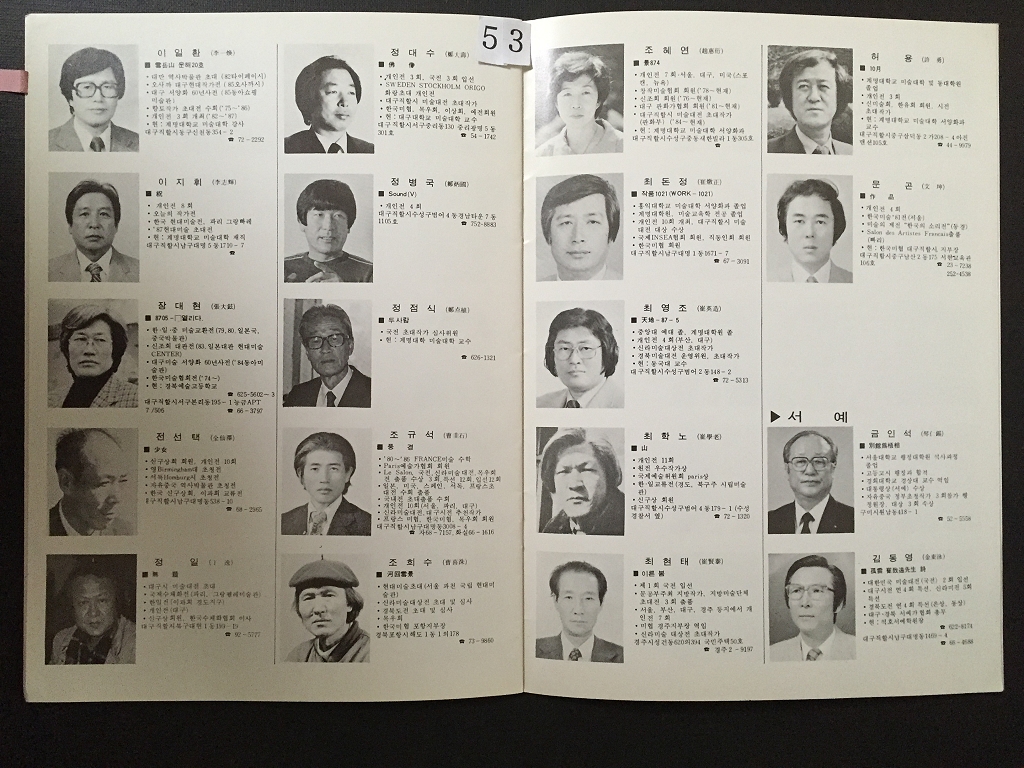 53
이일환 (李一煥)
■ 雪岳山 운해20호
• 대만 역사박물관 초대 (82타이페이시)
• 오사까 대구현대작가전 ('85오사까시)
• 대구 서양화 60년사전 ('85동아쇼핑
미술관)
• 향토작가 초대전 수회 ('75~'86)
• 개인전 3회 개최 ('82~'87)
• 현 : 계명대학교 미술대학 강사
대구직할시동구신천동354-2
☎ 72-2292
이지휘 (李志輝)
■ 祝
• 개인전 8회
• 오늘의 작가전
• 한국 현대미술전, 파리 그랑빠레
• '87현대미술 초대전
• 현 : 계명대학교 미술대학 재직
대구직할시남구대명5동1710-7
☎
장대현
■ 8705-□열리다.
• 한·일·중 미술교환전(79, 80, 일본국,
중국박물관)
• 신조회 대관전(83, 일본대판 현대미술
CENTER)
• 대구미술 서양화 60년사전('84동아미
술관)
• 한국미술협회전('74~)
• 현 : 경북예술고등학교
☎ 625-5602-3
대구직할시서구본리동195-1 능금APT
7/506 ☎ 66-3797
전선택
■ 少女
• 신구상회 회원, 개인전 10회
• 영Birmingham대 초청전
• 자유중국 역사박물관 초청전
• 한국 신구상회, 이과회 교류전
대구직할시남구대명동538-10
☎ 68-2965
정일
■ 無題
• 대구시 미술대전 초대
• 국제수채화전(파리, 그랑빨레미술관)
• 개인전(대구)
• 신구상회원, 한국수채화협회 이사
☎ 92-5777
정대수 (鄭大壽)
■ 佛像
• 개인전 3회, 국전 3회 입선
• SWEDEN STOCKHOLM ORIGO
화랑초대 개인전
• 대구직할시 미술대전 초대작가
• 한국미협, 목우회, 이상회, 예전회원
• 현 : 대구대학교 미술대학 교수
대구직할시서구중리동130 중리광명5동
301호 ☎ 54-1742
정병국 (鄭炳國)
■ Sound(V)
• 개인전 4회
대구직할시수성구범어4동경남타운7동
1105호 ☎ 752-8883
정점식 (鄭点植)
■ 두사람
• 국전 초대작가 심사위원
• 현 : 계명대학교 미술대학 교수
☎ 626-1321
조규석 (曺圭石)
■ 풍경
• '80~'85 FRANCE미술 수학
• Paris예술가협회 회원
• Le Salon, 국전, 신라미술대전, 목우회
전 출품 수상 3회, 특선 12회, 입선12회
• 일본, 미국, 스페인, 서독, 프랑스초
대전 수회 출품
• 국내전 초대출품 수회
• 개인전 10회(서울, 파리, 대구)
• 신라미술대전, 대구시전 추천작가
• 프랑스 미협, 한국미협, 목우회 회원
대구직할시남구대명동3008-4
☎ 자68-7157, 화실66-1616
조희수
■ 河回雪景
• 현대미술초대(서울 과천 국립 현대미
술관)
• 신라미술대상전 초대 및 심사
• 경북도전 초대 및 심사
• 목우회
• 한국미협 포항지부장
경북포항시해도1동1의178
☎ 73-9860
조혜연 (趙惠衍)
■ 景874
• 개인전 7회-서울, 대구, 미국(스포
캔, 뉴욕)
• 창작미술협회 회원('78~현재)
• 신조회 회원('76~현재)
• 대구 판화가협회 회원('81~현재)
• 대구직할시 미술대전 초대작가
(판화부) ('84~현재)
• 현 : 계명대학교 미술대학 서양화과
대구직할시수성구중동새한빌라1동305호
☎
최돈정 (崔燉正)
■ 작품1021(WORK-1021)
• 홍익대학교 미술대학 서양화과 졸업
• 계명대학원, 미술교육학 전공 졸업
• 개인전 10회 개최, 대구직할시 미술
대전 대상 수상
• 국제INSEA협회 회원, 직동인회 회원
• 한국미협 회원
대구직할시남구대명1동1671-7
☎ 67-3091
최영조 (崔英造)
■ 天地-87-5
• 중앙대 예대 졸, 계명대학원 졸
• 개인전 4회(부산, 대구)
• 신라미술대상전 초대작가
• 경북미술대전 운영위원, 초대작가
• 현 : 동국대 교수
대구직할시수성구범어2동148-2
☎ 72-5313
최학노 (崔學老)
■ 山
• 개인전 11회
• 원전 우수작가상
• 국제예술위원회 paris상
• 한·일교류전(경도, 북구주 시립미술
관)
• 신구상 회원
대구직할시수성구범어4동179-1 (수성
경찰서 옆) ☎ 72-1320
최현태 (崔賢泰)
■ 이른 봄
• 제1회 국전 입선
• 문공부주최 지방작가, 지방미술단체
초대전 3회 출품
• 서울, 부산, 대구, 경주 등지에서 개
인전 7회
• 미협 경주지부장 역임
• 신라미술 대상전 초대작가
경주시성건동620의394 국민주택50호
☎ 경주2-9197
허용
■ 10月
• 계명대학교 미술대학 및 동대학원
졸업
• 개인전 3회
• 신미술회, 한유회 회원, 시전
초대작가
• 현 : 계명대학교 미술대학 서양화과
교수
대구직할시중구삼덕동2가208-4 아진
맨션105호 ☎ 44-9979
문곤 (文坤)
■ 作品
• 개인전 4회
• 한국미술'81전(서울)
• 미술의 제전 "한국의 소리전"(동경)
• Salon des Artistes Francais출품
(빠리)
• 현 : 한국미협 대구직할시 지부장
대구직할시중구남산2동175 서현교육관
106호 ☎ 23-7238
252-4538
▶서예
금인석
• 서울대학교 행정대학원 석사과정
졸업
• 고등고시 행정과 합격
• 경희대학교 경상대 교수 역임
• 대통령상(서예) 수상
• 자유중국 정부초청작가 3회참가 행
정원장, 대상 3회 수상
☎ 52-5558
김동영
■ 孤雲 崔致遠先生 詩
• 대한민국 미술대전(국전) 2회 입선
• 대구시전 현4회 특선, 신라미전 5회
특선
• 경북도전 현4회 특선(은상, 동상)
• 대구·경북 서예가협회 총무
• 현 : 석호서예학원장
☎ 622-8174
대구직할시남구대명동1469-4
☎ 66-4988